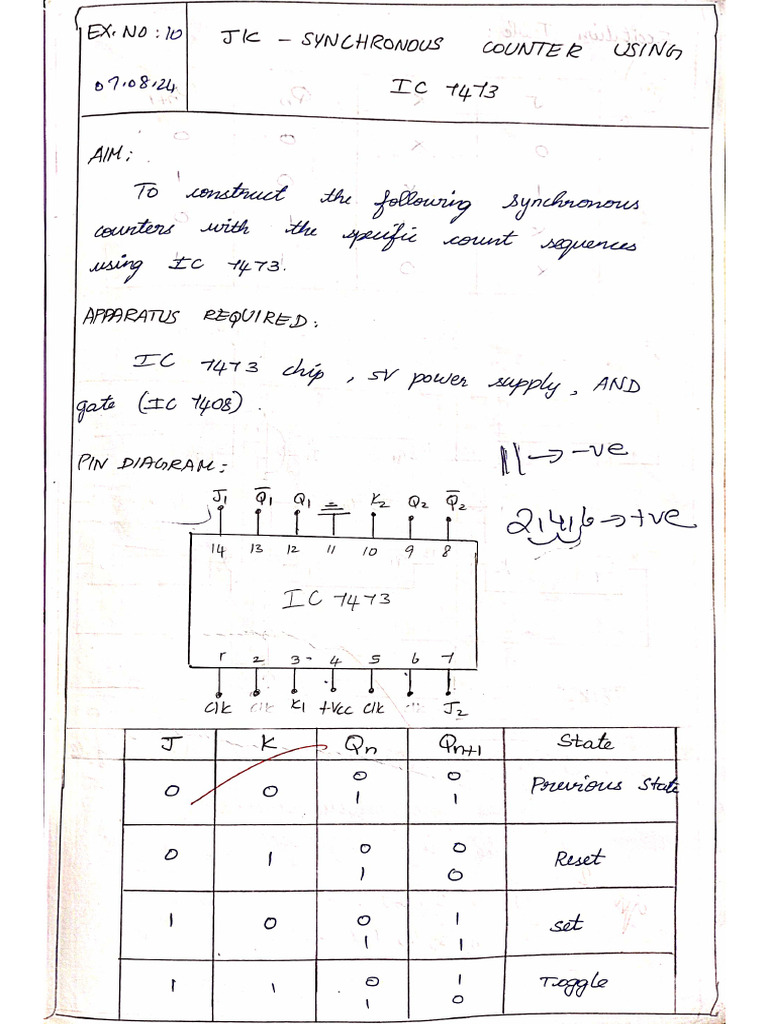 EX. NO : 10
JK - SYNCHRONOUS COUNTER USING
07.08.24
IC 7473
AIM:
To construct the following synchronous
counters with the specific count sequences
using IC 7473.
APPARATUS REQUIRED:
IC 7473 chip, 5V power supply, AND
gate (IC 7408).
PIN DIAGRAM:
11 → -ve
2,4,6 → +ve
J1 Q̅1 Q1 K2 Q2 Q̅2
14 13 12 11 10 9 8
IC 7473
1 2 3 4 5 6 7
Clk clk K1 +Vcc Clk J2
J K Qn Qn+1 State
0 0 0 0 Previous State
1 1
0 1 0 0 Reset
1 0
1 0 0 1 Set
1 1
1 1 0 1 Toggle
1 0